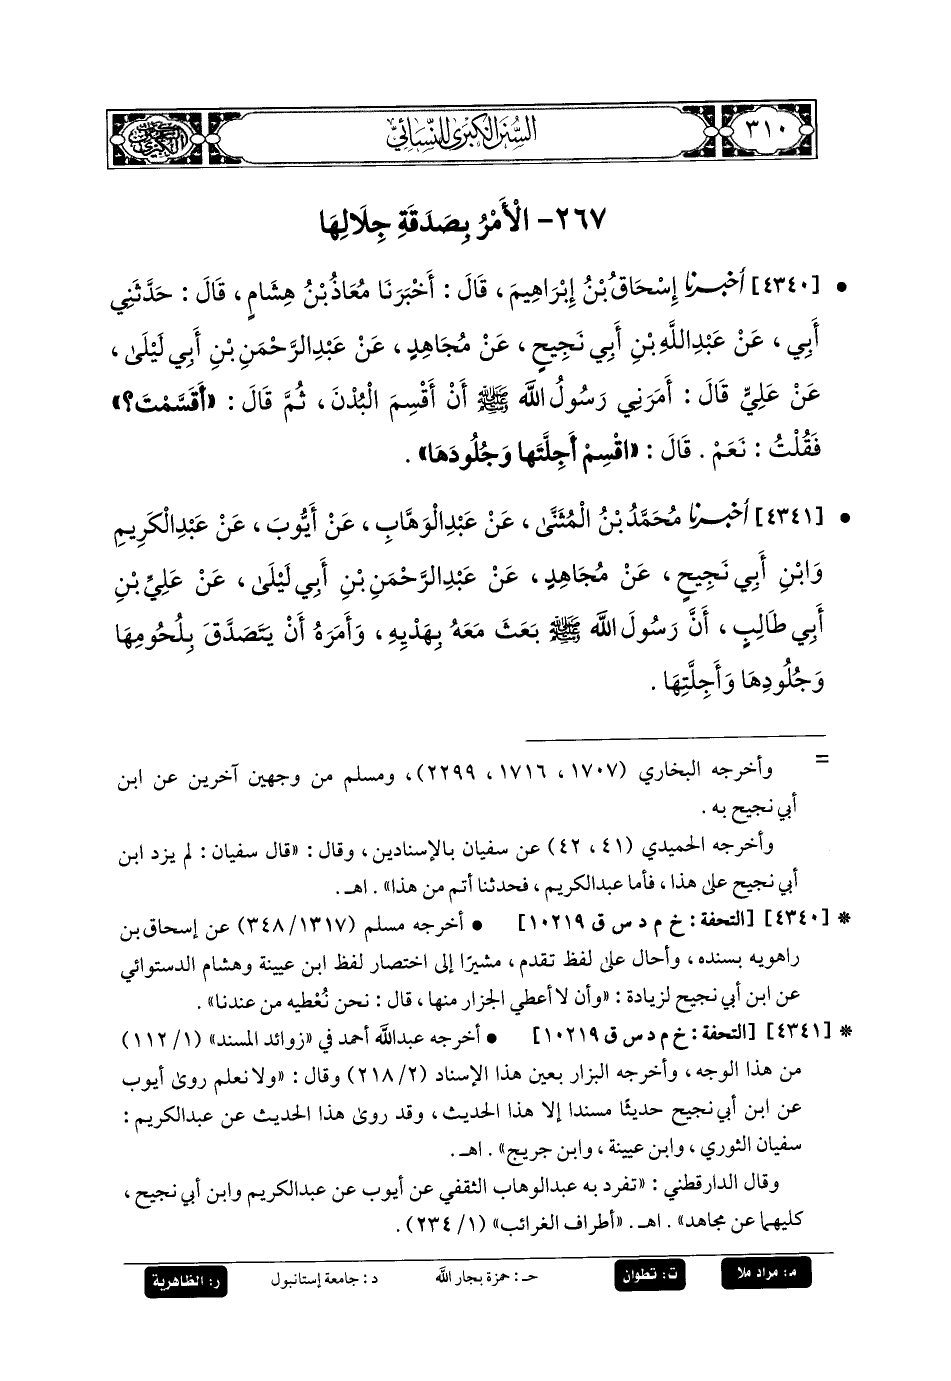 ٣١٠
السنن الكبرى للنسائي
٢٦٧- الْأَمْرُ بِصَدَقَةِ جِلَالِهَا
• [٤٣٤٠] أخبرنا إِسْحَاقُ بْنُ إِبْرَاهِيمَ، قَالَ: أَخْبَرَنَا مُعَاذُ بْنُ هِشَامٍ، قَالَ: حَدَّثَنِي
أَبِي، عَنْ عَبْدِ اللَّهِ بْنِ أَبِي نَجِيحٍ، عَنْ مُجَاهِدٍ، عَنْ عَبْدِ الرَّحْمَنِ بْنِ أَبِي لَيْلَىٰ،
عَنْ عَلِيٍّ قَالَ: أَمَرَنِي رَسُولُ اللَّهِ ﷺ أَنْ أَقْسِمَ الْبُدْنَ، ثُمَّ قَالَ: «أَقَسَّمْتَ؟»
فَقُلْتُ: نَعَمْ. قَالَ: «اقْسِمْ أَجِلَّتَها وَجُلُودَهَا».
• [٤٣٤١] أخبرنا مُحَمَّدُ بْنُ الْمُثَنَّىٰ، عَنْ عَبْدِ الْوَهَّابِ، عَنْ أَيُّوبَ، عَنْ عَبْدِ الْكَرِيمِ
وَابْنِ أَبِي نَجِيحٍ، عَنْ مُجَاهِدٍ، عَنْ عَبْدِ الرَّحْمَنِ بْنِ أَبِي لَيْلَىٰ، عَنْ عَلِيِّ بْنِ
أَبِي طَالِبٍ، أَنَّ رَسُولَ اللَّهِ ﷺ بَعَثَ مَعَهُ بِهَدْيِهِ، وَأَمَرَهُ أَنْ يَتَصَدَّقَ بِلُحُومِهَا
وَجُلُودِهَا وَأَجِلَّتِهَا.
= وأخرجه البخاري (١٧٠٧، ١٧١٦، ٢٢٩٩)، ومسلم من وجهين آخرين عن ابن
أبي نجيح به.
وأخرجه الحميدي (٤١، ٤٢) عن سفيان بالإسنادين، وقال: «قال سفيان: لم يزد ابن
أبي نجيح على هذا، فأما عبدالكريم، فحدثنا أتم من هذا». اهـ.
* [٤٣٤٠] [التحفة: خ م د س ق ١٠٢١٩] • أخرجه مسلم (٣٤٨/١٣١٧) عن إسحاق بن
راهويه بسنده، وأحال على لفظ تقدم، مشيرًا إلى اختصار لفظ ابن عيينة وهشام الدستوائي
عن ابن أبي نجيح لزيادة: «وأن لا أعطي الجزار منها، قال: نحن نُعْطيه من عندنا».
* [٤٣٤١] [التحفة: خ م د س ق ١٠٢١٩] • أخرجه عبدالله أحمد في «زوائد المسند» (١/ ١١٢)
من هذا الوجه، وأخرجه البزار بعين هذا الإسناد (٢/ ٢١٨) وقال: «ولا نعلم روىٰ أيوب
عن ابن أبي نجيح حديثًا مسندا إلا هذا الحديث، وقد روىٰ هذا الحديث عن عبدالكريم:
سفيان الثوري، وابن عيينة، وابن جريج». اهـ.
وقال الدارقطني: «تفرد به عبدالوهاب الثقفي عن أيوب عن عبدالكريم وابن أبي نجيح،
كليهما عن مجاهد». اهـ. «أطراف الغرائب» (١/ ٢٣٤).
م: مراد ملا ت: تطوان حـ: حمزة بجار الله د: جامعة إستانبول ر: الظاهرية